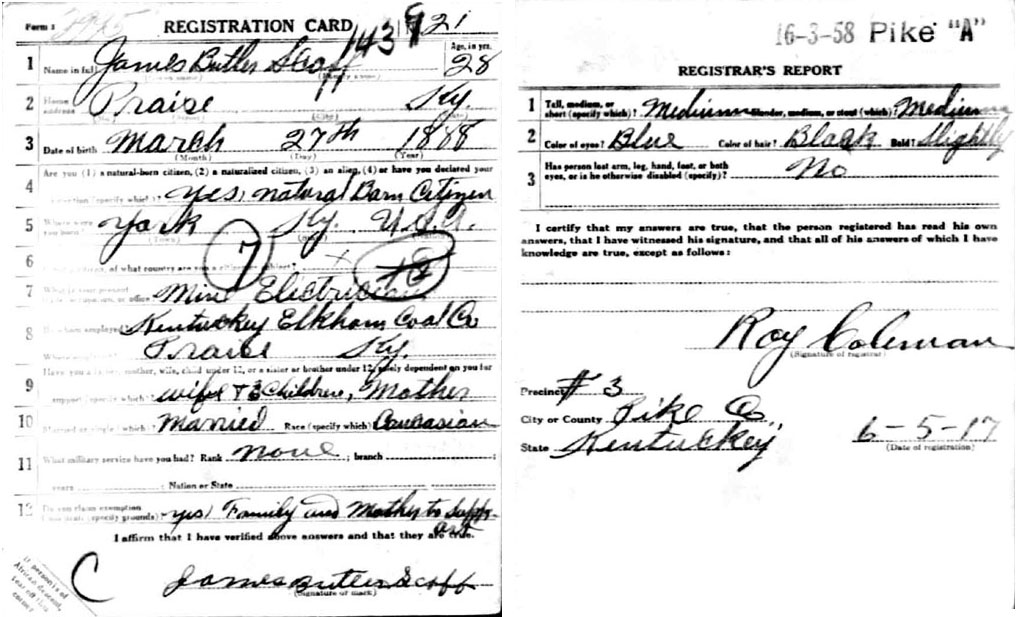 Form 1 REGISTRATION CARD No. 21
1439
1 Name in full James Butler Scoff Age, in yrs. 28
2 Home address Praise Ky.
3 Date of birth March 27th 1888
(Month) (Day) (Year)
4 Are you (1) a natural-born citizen, (2) a naturalized citizen, (3) an alien, (4) or have you declared your
(specify which)? yes, natural Born Citizen
5 Where were you born? York Ky. U.S.A.
6 of what country are you a citizen or subject?
7
7 Mine Electrician
8 By whom employed? Kentucky Elkhorn Coal Co
Praise Ky.
9 Have you a father, mother, wife, child under 12, or a sister or brother under 12, solely dependent on you for
support (specify which)? wife & 3 Children, Mother
10 Married or single (which)? Married Race (specify which)? Caucasian
11 What military service have you had? Rank None ; branch ;
years ; Nation or State
12 Do you claim exemption from draft (specify grounds)? yes, Family and Mother to supp-
ort
I affirm that I have verified above answers and that they are true.
C James Butler Scoff
(Signature or mark)
If person is of African descent, tear off this corner
16-3-58 Pike "A"
REGISTRAR'S REPORT
1 Tall, medium, or short (specify which)? Medium Slender, medium, or stout (which)? Medium
2 Color of eyes? Blue Color of hair? Black Bald? Slightly
3 Has person lost arm, leg, hand, foot, or both
eyes, or is he otherwise disabled (specify)? No
I certify that my answers are true, that the person registered has read his own
answers, that I have witnessed his signature, and that all of his answers of which I have
knowledge are true, except as follows:
Roy Coleman
(Signature of registrar)
Precinct # 3
City or County Pike Co.
State Kentucky 6-5-17
(Date of registration)